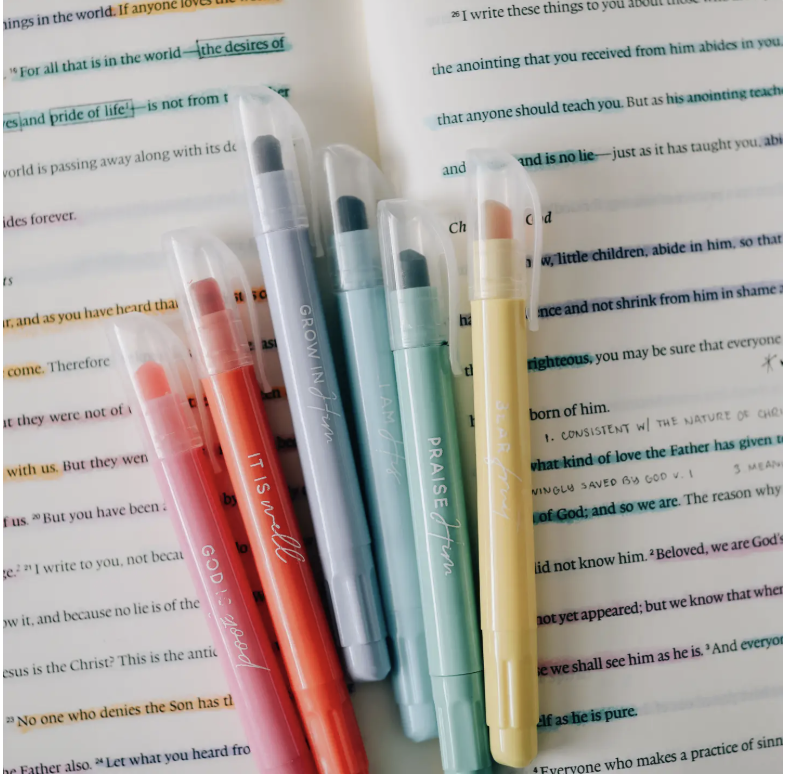 things in the world. If anyone loves the
¹⁶ For all that is in the world—the desires of
and pride of life—is not from
world is passing away along with its
abides forever.
and as you have heard that
come. Therefore
they were not of
with us. But they
of us. ²⁰ But you have been
²¹ I write to you, not
it, and because no lie is of the
Jesus is the Christ? This is the
²³ No one who denies the Son has
the Father also. ²⁴ Let what you heard
²⁶ I write these things to you about those
the anointing that you received from him abides in you,
that anyone should teach you. But as his anointing
and is no lie—just as it has taught you,
little children, abide in him, so that
and not shrink from him in shame
righteous, you may be sure that everyone
born of him.
1. CONSISTENT W/ THE NATURE OF
what kind of love the Father has given
SAVED BY GOD V. 1 3.
of God; and so we are. The reason why
did not know him. ² Beloved, we are God's
not yet appeared; but we know that when
we shall see him as he is. ³ And
as he is pure.
⁴ Everyone who makes a practice of
GOD is good
IT IS well
GROW IN Him
I AM His
PRAISE Him